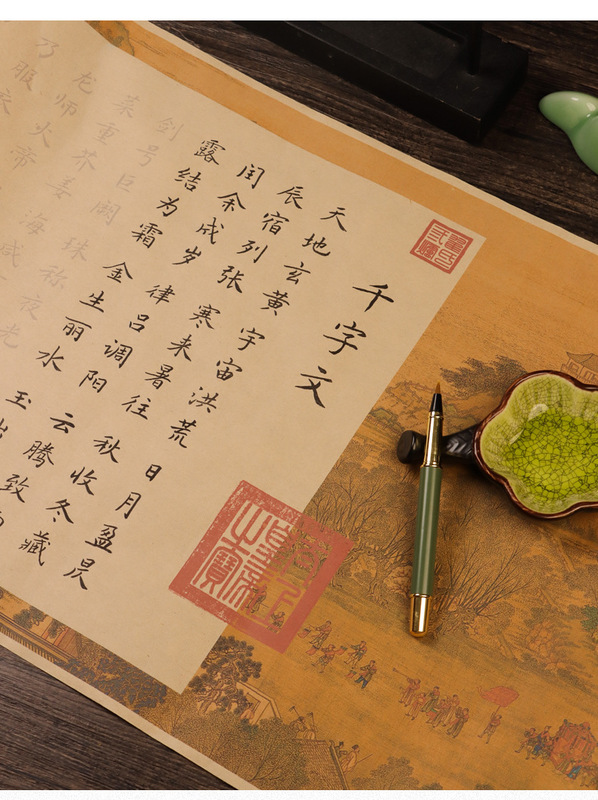 千字文
天地玄黄宇宙洪荒日月盈昃
辰宿列张寒来暑往秋收冬藏
闰余成岁律吕调阳云腾致
露结为霜金生丽水玉出
剑号巨阙珠称夜光
菜重芥姜海咸
龙师火帝
乃服衣